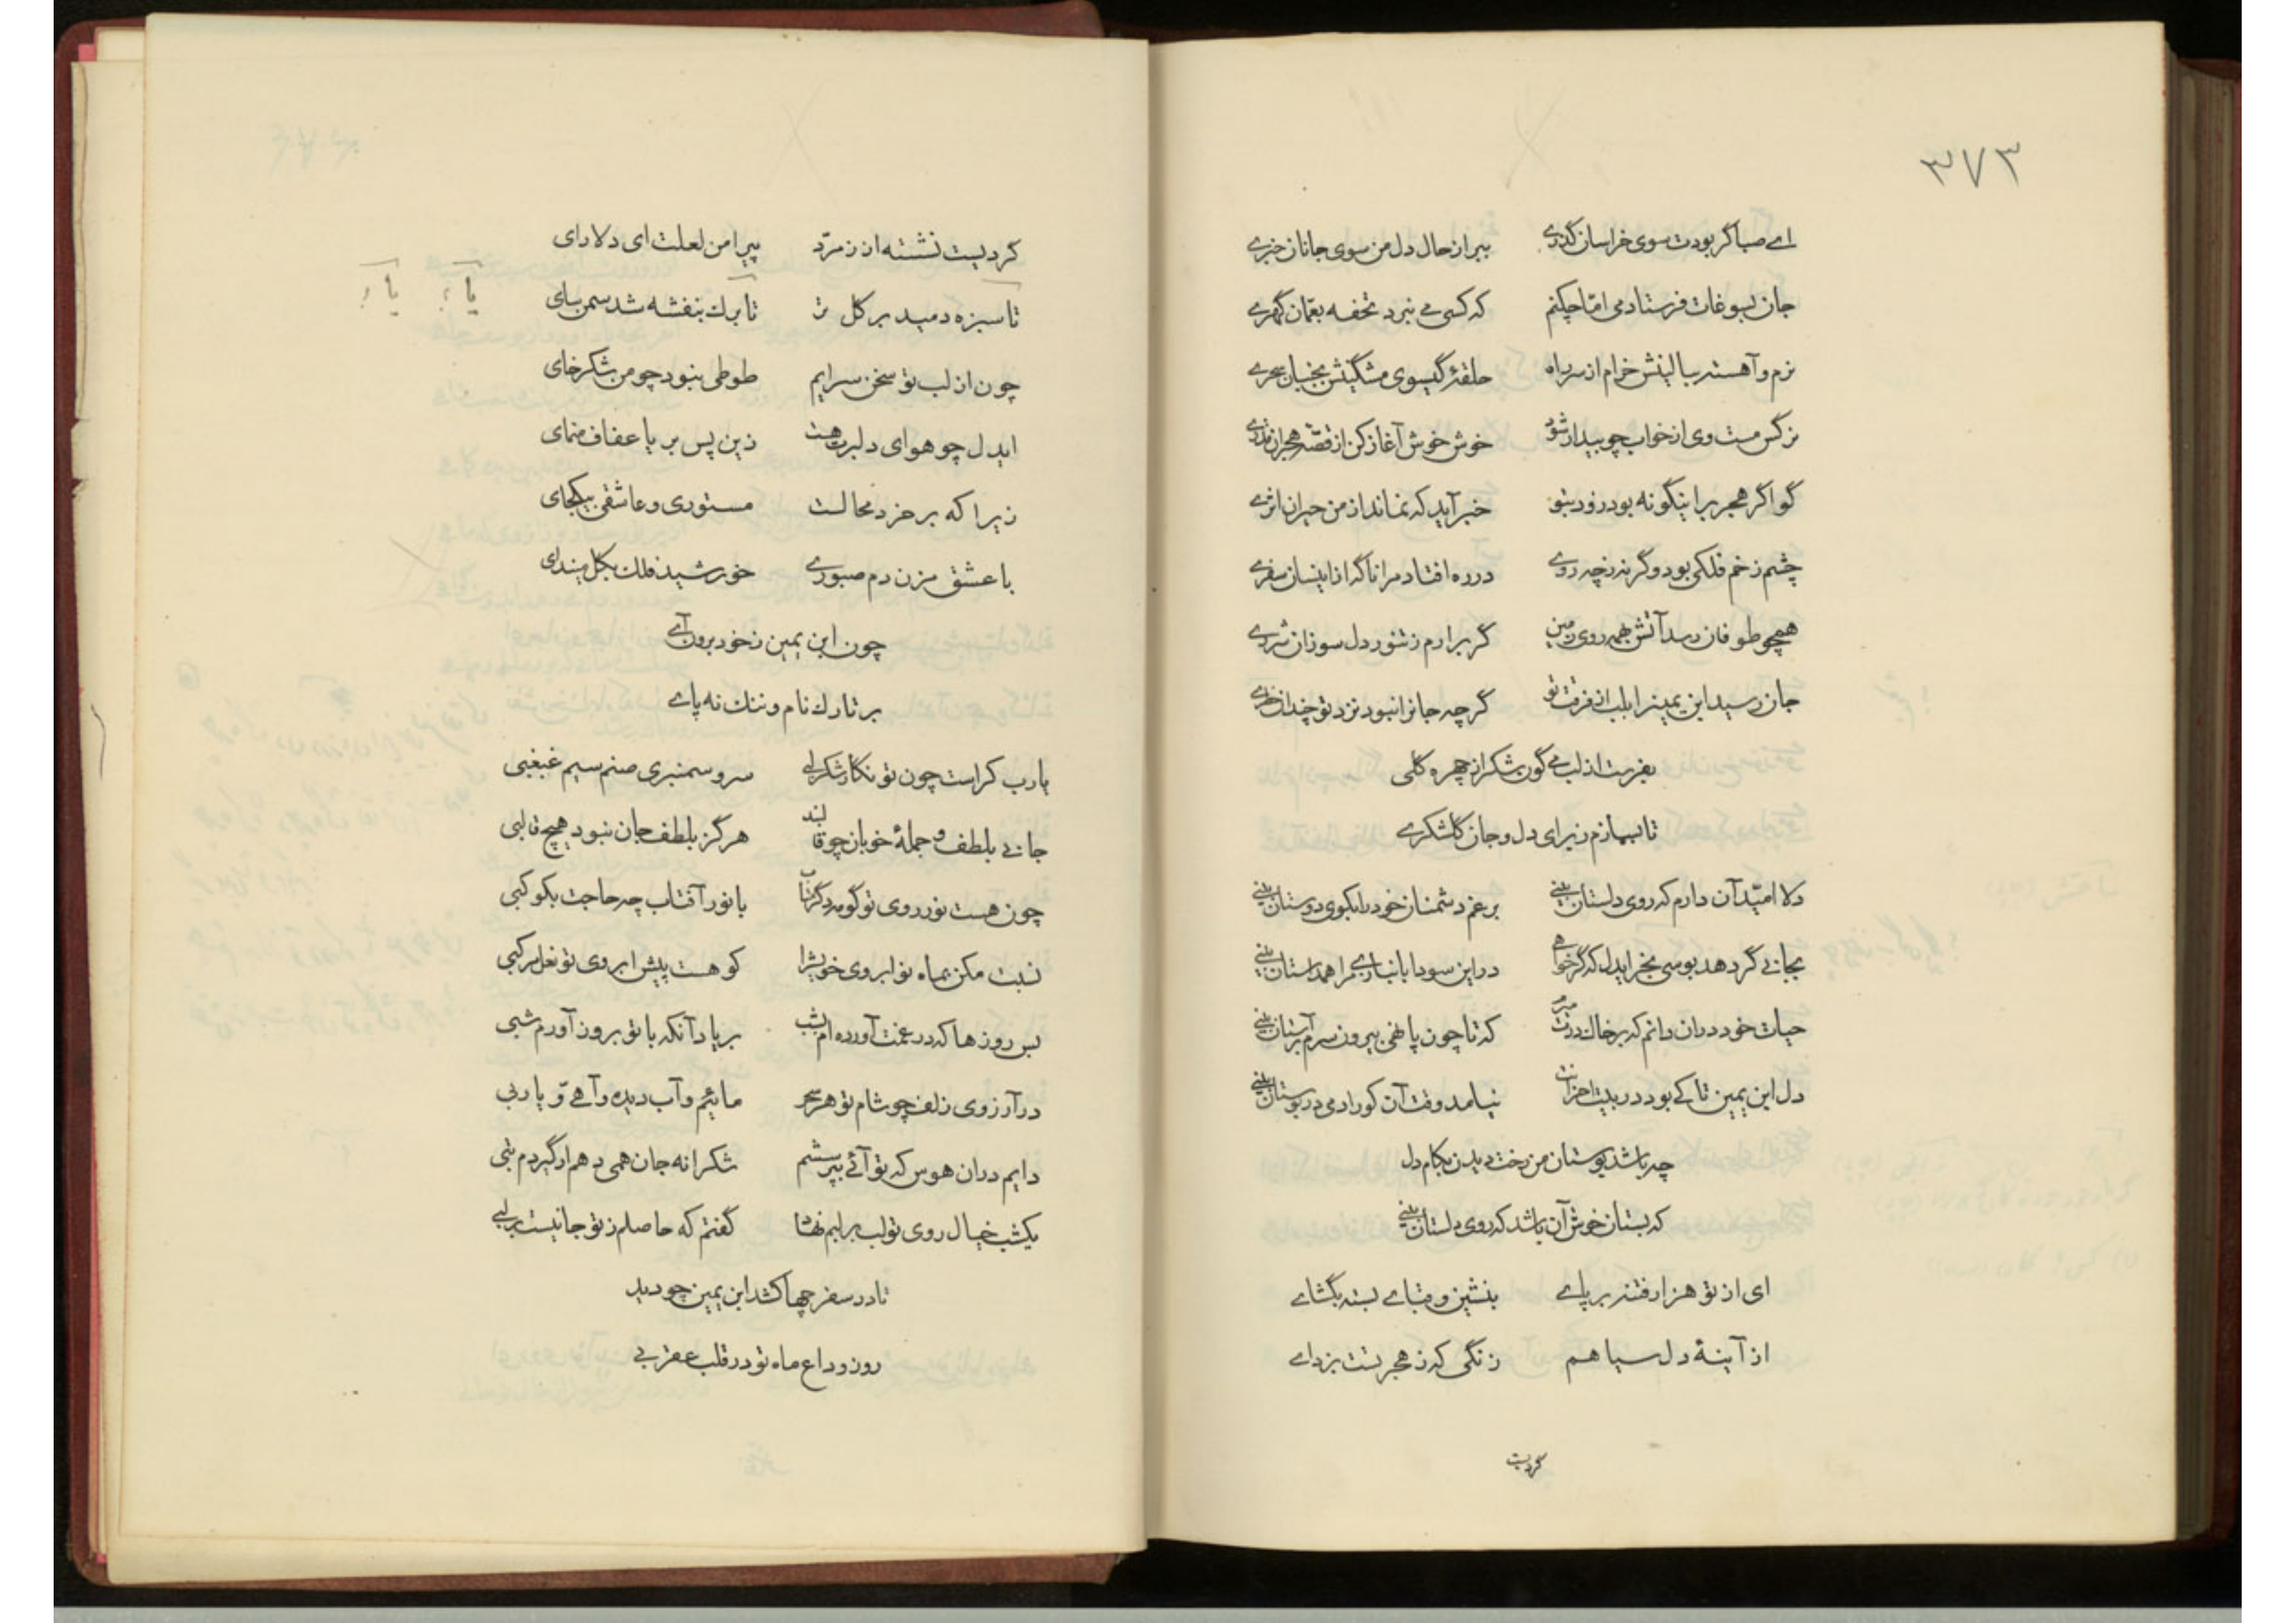 ۳۷۳
اے صبا گر بودت سوی خراسان گذرے ببر از حال دل من سوی جانان خبرے
جان بسوغات فرستادمی امّا چکنم که کسی مے نبرد تحفه بعمّان گهرے
نرم و آهسته ببالینش خرام از سر راه حلقۀ گیسوی مشگینش بجنبان سحرے
نرگس مست وی از خواب چو بیدار شود خوش خوش آغاز کن از قصّۀ هجران
گو اگر هجر برا ینگونه بود زود بتو خبر آید که نماند از من حیران اثرے
چشم زخم فلکی بود و گر نه ز چه روے در ره افتاد مرا ناگه از اینسان سفرے
همچو طوفان رسد آتش بهمه روی زمین گر برارم ز تنور دل سوزان شررے
جان رسید ابن یمین را بلب از فرقت تو گر چه جانرا نبود نزد تو چندان خطرے
بفرست از لب مے گون شکر از چهره گلی
تا بسازم ز برای دل و جان گلشکرے
دلا امیّد آن دارم که روی دلستان بینے برغم دشمنان خود را بکوی دوستان بینے
بجانے گر دهد بوسی بخر ایدل که گر خواهے در این سودا بانبازے مرا همداستان بینے
حیات خود در ان دانم که بر خاک درت میرم که تا چون پا نهی بیرون سرم بر آستان بینے
دل ابن یمین تا کے بود در بیت احزانت نیامد وقت آن کو را دمی در بوستان بینے
چه باشد بوستان من رخت دیدن بکام دل
که بستان خوش آن باشد که روی دلستان بینے
ای از تو هزار فتنه بر پاے بنشین و قباے بسته بگشاے
از آینۀ دل سیا هم زنگی که ز هجر تست بزداے
گردیست
گردیست نشسته از زمرّد پیرامن لعلت ای دلارای
تا سبزه دمید بر گل تر تا برك بنفشه شد سمن سای
یا ؟ یا ؟
چون از لب تو سخن سرایم طوطی نبود چو من شکر خای
ایدل چو هوای دلبرت هست زین پس بر یا عفاف منمای
زیرا که بر خرد محالست مستوری و عاشقی بیکجای
با عشق مزن دم صبورے خورشید فلك بگل میندای
چون ابن یمین ز خود برون آے
بر تارك نام و ننك نه پاے
یارب کراست چون تو نگار شکر لبے سرو سمنبری صنم سیم غبغبی
جانے بلطف و جملۀ خوبان چو قالبند هرگز بلطف جان نبود هیچ قالبی
چون هست نور روی تو گو مه دگر متاب با نور آفتاب چه حاجت بکوکبی
نسبت مکن بماه نو ابروی خویش را کو هست پیش ابروی تو نعل مرکبی
بس روز ها که در غمت آورده ام بشب بر یاد آنکه با تو بروز آورم شبی
در آرزوی زلف چو شام تو هر سحر مائیم و آب دیده و آهے و یاربی
دایم در ان هوس که تو آئے بپرسشم شکرانه جان همی دهم ار گیردم تبی
یکشب خیال روی تو لب بر لبم نهاد گفتم که حاصلم ز تو جانیست بر لبے
تا در سفر چها کشد ابن یمین چو دید
روز وداع ماه تو در قلب عقربے